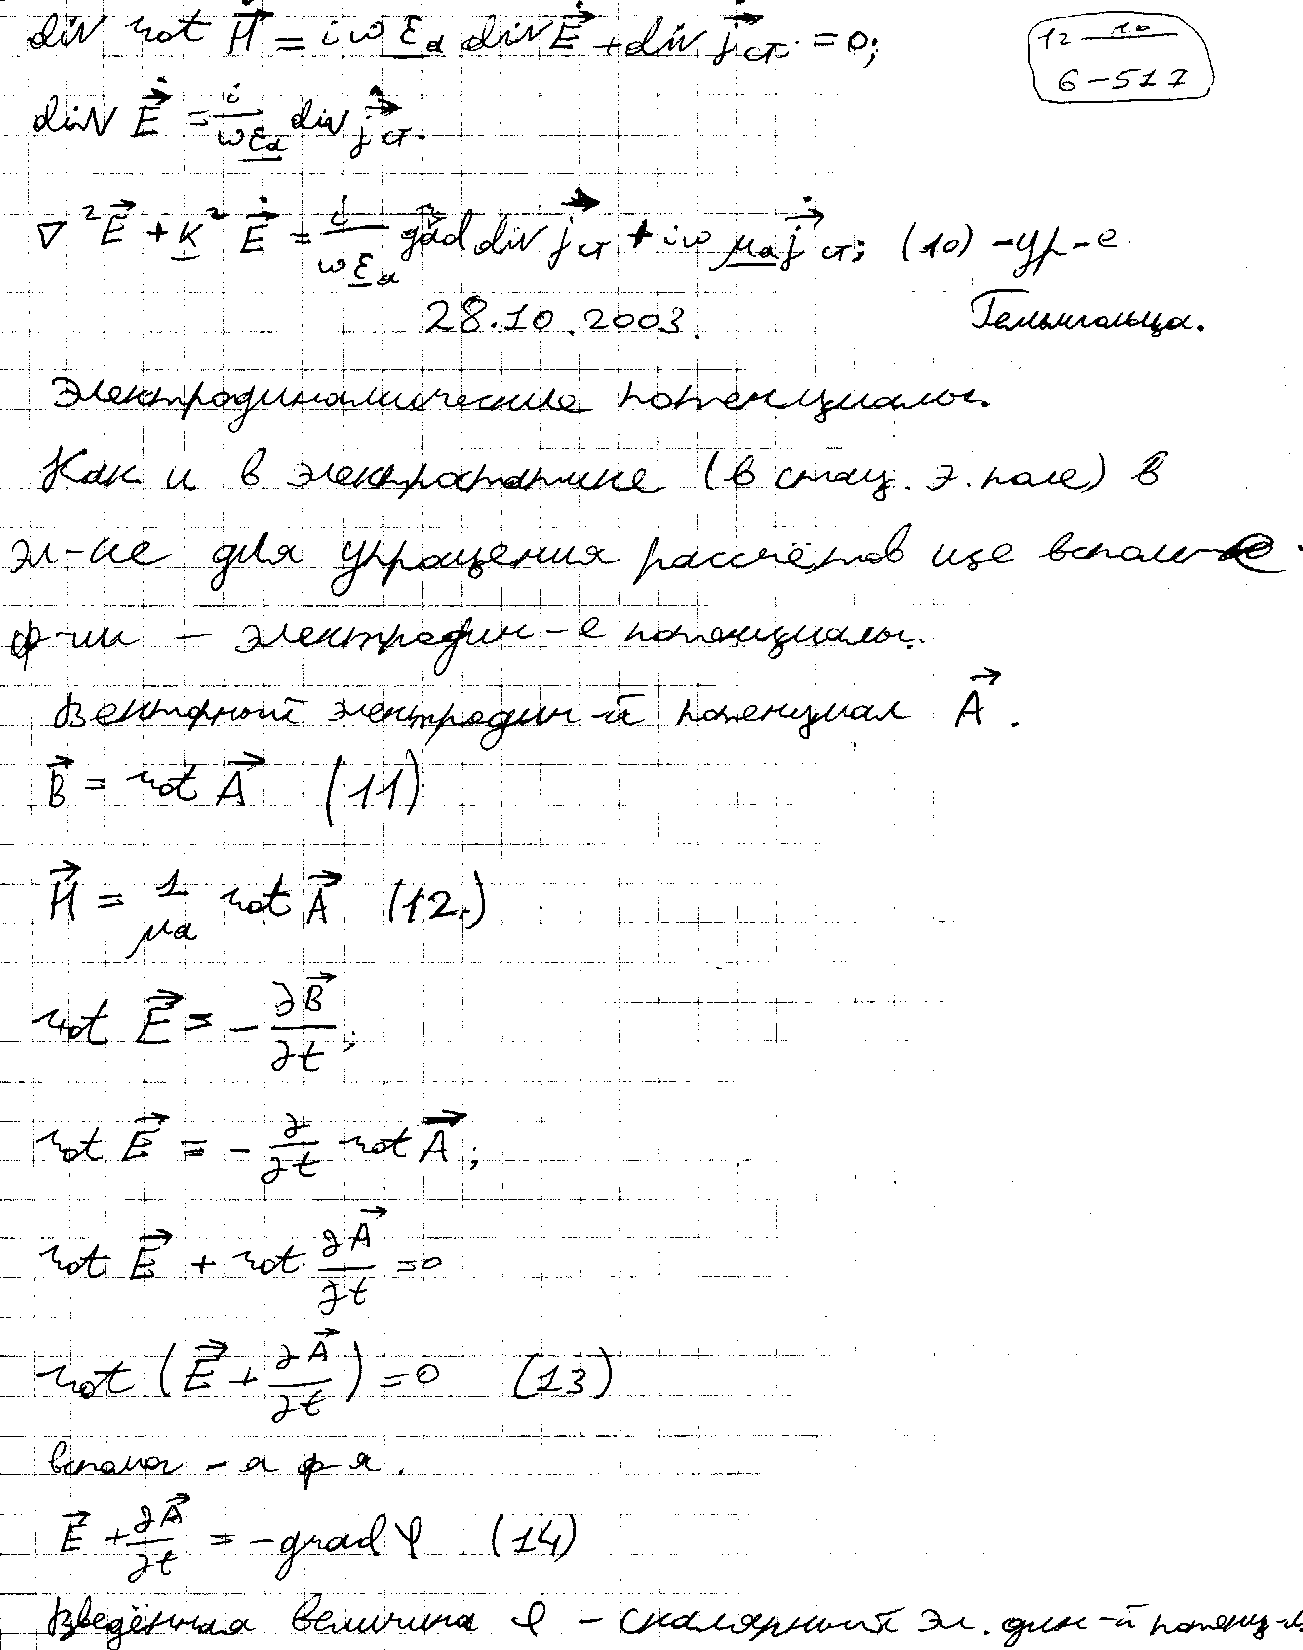 div rot H⃗̇ = iω ε̲ₐ div E⃗̇ + div j⃗̇ ст. = 0;
12 10
6-517
div E⃗̇ = i/(ωε̲ₐ) div j⃗̇ ст.
∇²E⃗ + k̲² E⃗̇ = i/(ωε̲ₐ) grad div j⃗ ст + iω μ̲ₐ j⃗̇ ст; (10) - ур-е
Гельмгольца.
28.10.2003.
Электродинамические потенциалы.
Как и в электростатике (в стац. э. поле) в
эл-ке для упрощения рассчётов
ф-ии – электродин-е потенциалы.
Векторный электродин-й потенциал A⃗.
B⃗ = rot A⃗ (11)
H⃗ = 1/μₐ rot A⃗ (12.)
rot E⃗ = - ∂B⃗/∂t;
rot E⃗ = - ∂/∂t rot A⃗;
rot E⃗ + rot ∂A⃗/∂t = 0
rot (E⃗ + ∂A⃗/∂t) = 0 (13)
вспомог-я ф-я.
E⃗ + ∂A⃗/∂t = - grad φ (14)
Введённая величина φ – скалярный эл. дин-й потенц-л.